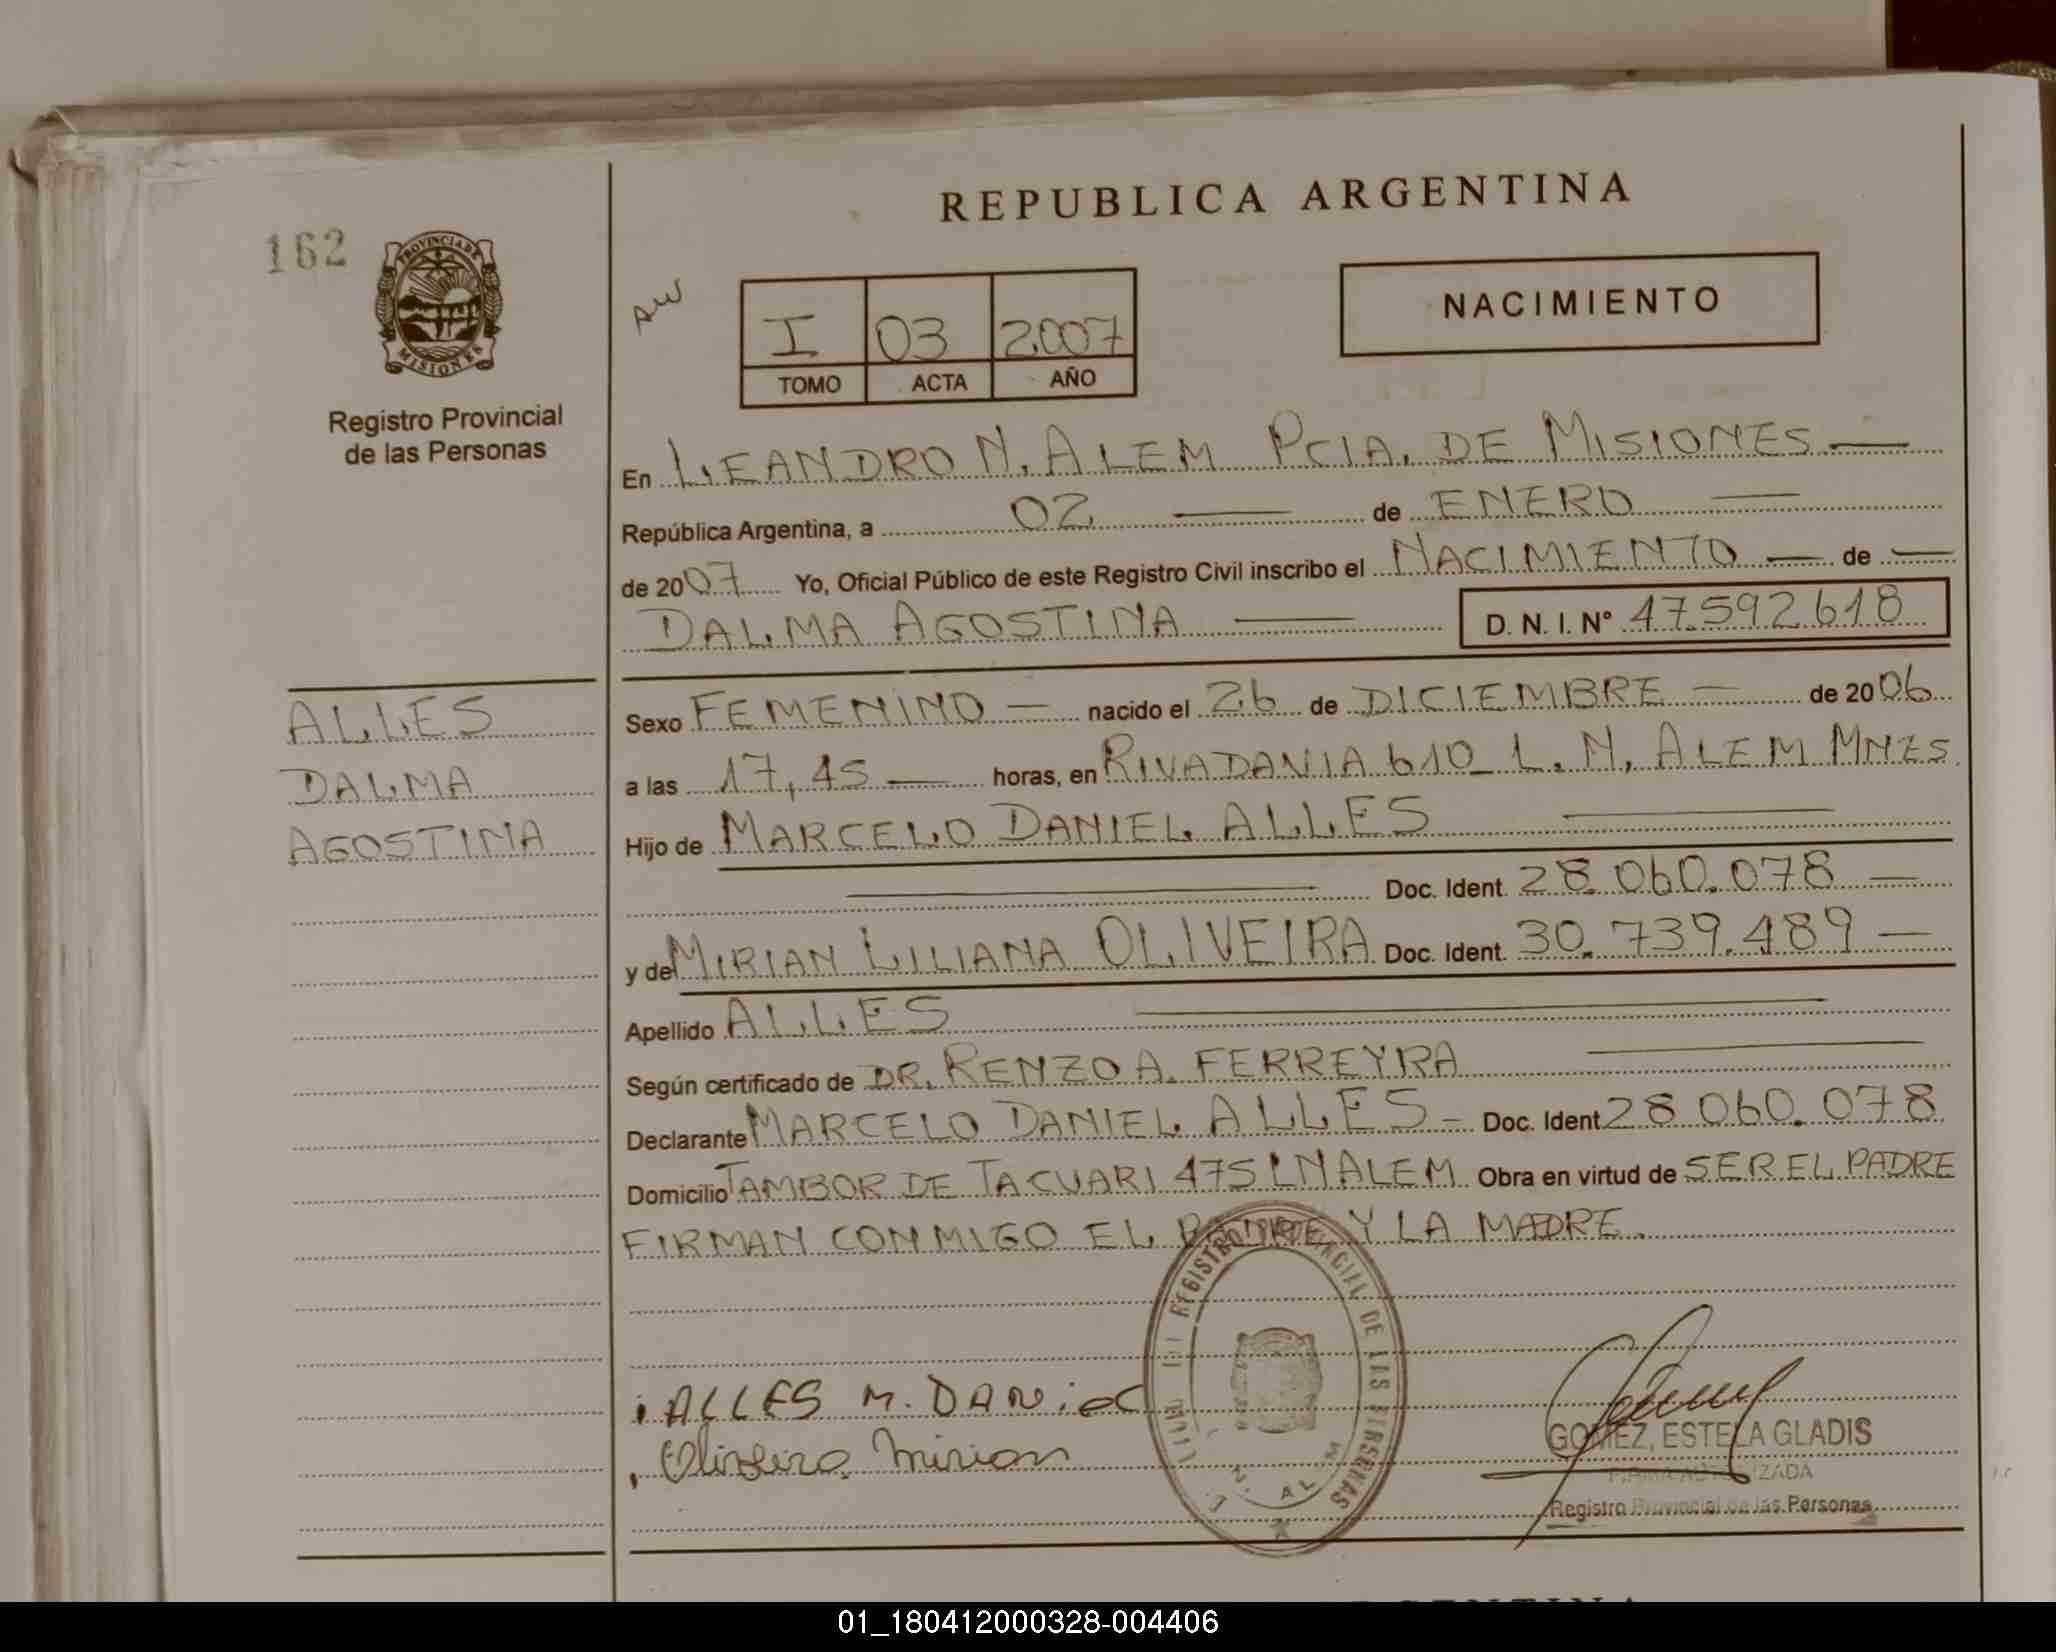 REPUBLICA ARGENTINA
162
PROVINCIA DE
MISIONES
Registro Provincial
de las Personas
I 03 2.007
TOMO ACTA AÑO
NACIMIENTO
En LEANDRO N. ALEM PCIA. DE MISIONES
República Argentina, a 02 de ENERO
de 2007 Yo, Oficial Público de este Registro Civil inscribo el NACIMIENTO de
DALMA AGOSTINA D. N. I. N° 47.592.618
ALLES
DALMA
AGOSTINA
Sexo FEMENINO nacido el 26 de DICIEMBRE de 2006
a las 17,45 horas, en RIVADAVIA 610_ L. N. ALEM MNES.
Hijo de MARCELO DANIEL ALLES
Doc. Ident. 28.060.078
y de MIRIAN LILIANA OLIVEIRA Doc. Ident. 30.739.489
Apellido ALLES
Según certificado de DR. RENZO A. FERREYRA
Declarante MARCELO DANIEL ALLES Doc. Ident 28.060.078
Domicilio TAMBOR DE TACUARI 475 LN ALEM Obra en virtud de SER EL PADRE
FIRMAN CONMIGO EL PADRE Y LA MADRE.
REGISTRO PROVINCIAL DE LAS PERSONAS
ALLES M. DANiel
Oliveira Mirian
GOMEZ, ESTELA GLADIS
FIRMA AUTORIZADA
Registro Provincial de las Personas
01_180412000328-004406